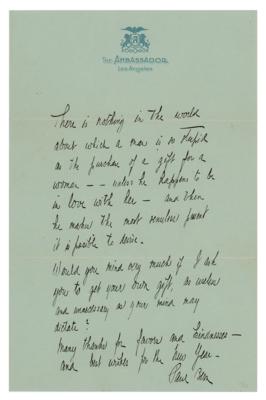 The AMBASSADOR
Los Angeles
There is nothing in the world
about which a man is so stupid
as the purchase of a gift for a
woman -- unless he happens to be
in love with her - and then
he makes the most senseless present
it is possible to desire.
Would you mind very much if I ask
you to get your own gift, as useless
and unnecessary as your mind may
dictate?
Many thanks for favors and kindnesses -
and best wishes for the New Year -
Paul Bern